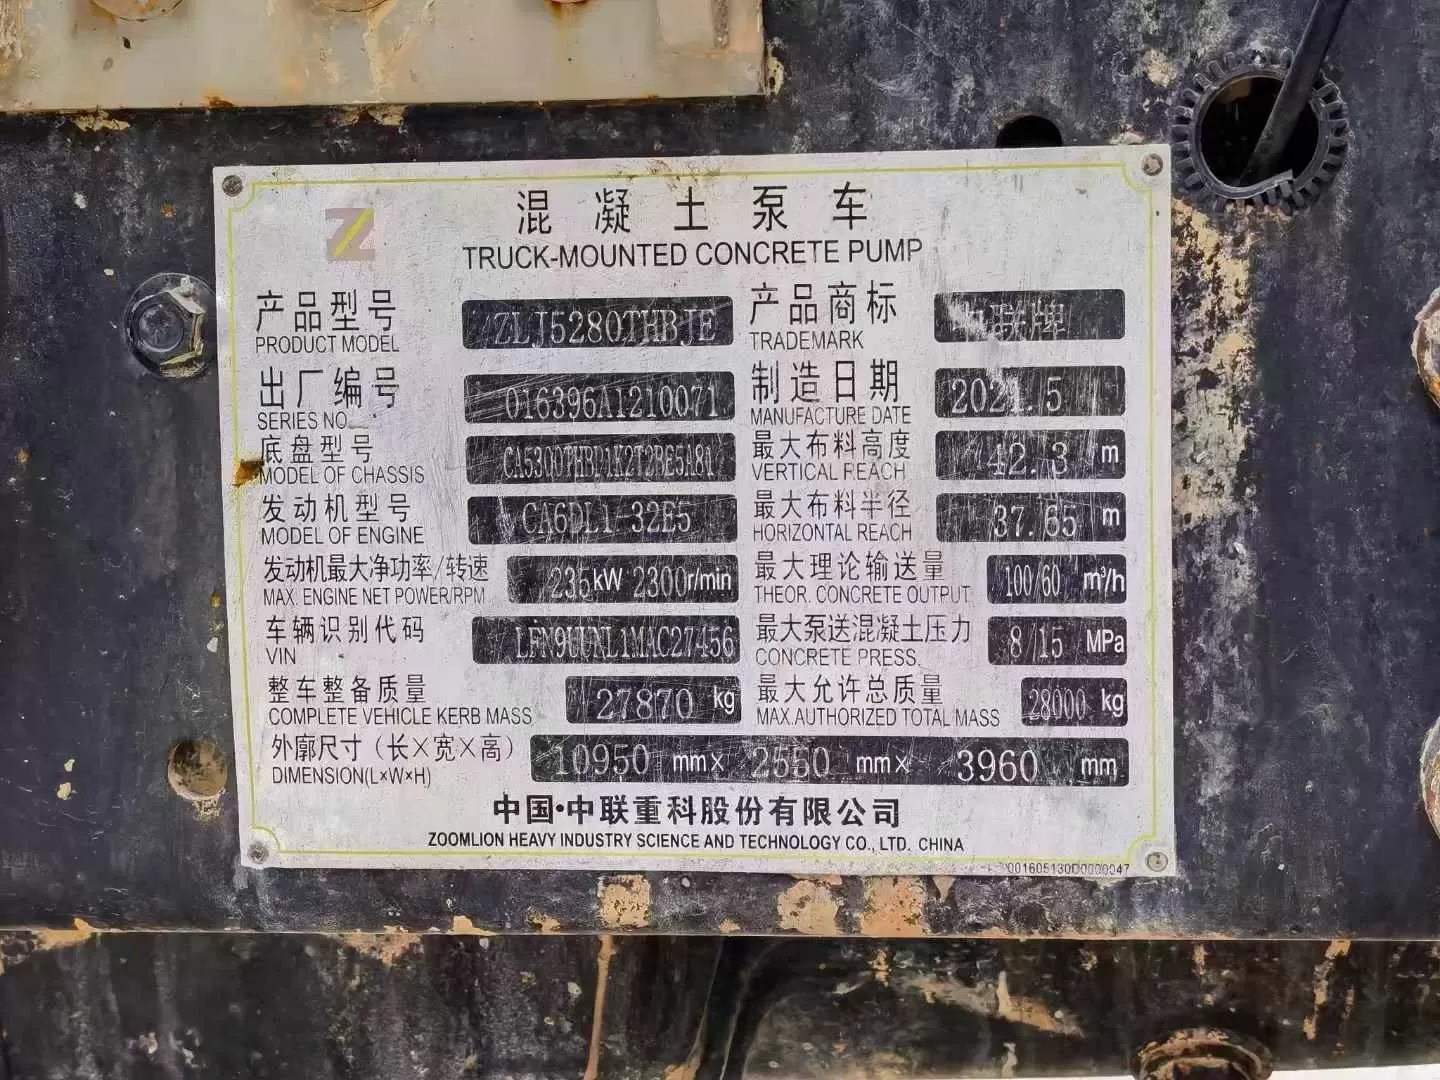 混凝土泵车
TRUCK-MOUNTED CONCRETE PUMP
产品型号 ZLJ5280THBJE 产品商标 联牌
PRODUCT MODEL TRADEMARK
出厂编号 016396A1210071 制造日期 2021.5
SERIES NO. MANUFACTURE DATE
底盘型号 最大布料高度 42.3 m
MODEL OF CHASSIS VERTICAL REACH
发动机型号 CA6DL1-32E5 最大布料半径 37.65 m
MODEL OF ENGINE HORIZONTAL REACH
发动机最大净功率/转速 235kW 2300r/min 最大理论输送量 100/60 m³/h
MAX. ENGINE NET POWER/RPM THEOR. CONCRETE OUTPUT
车辆识别代码 最大泵送混凝土压力 8/15 MPa
VIN CONCRETE PRESS.
整车整备质量 27870 kg 最大允许总质量 28000 kg
COMPLETE VEHICLE KERB MASS MAX.AUTHORIZED TOTAL MASS
外廓尺寸(长×宽×高) 10950 mm× 2550 mm× 3960 mm
DIMENSION(L×W×H)
中国·中联重科股份有限公司
ZOOMLION HEAVY INDUSTRY SCIENCE AND TECHNOLOGY CO., LTD. CHINA